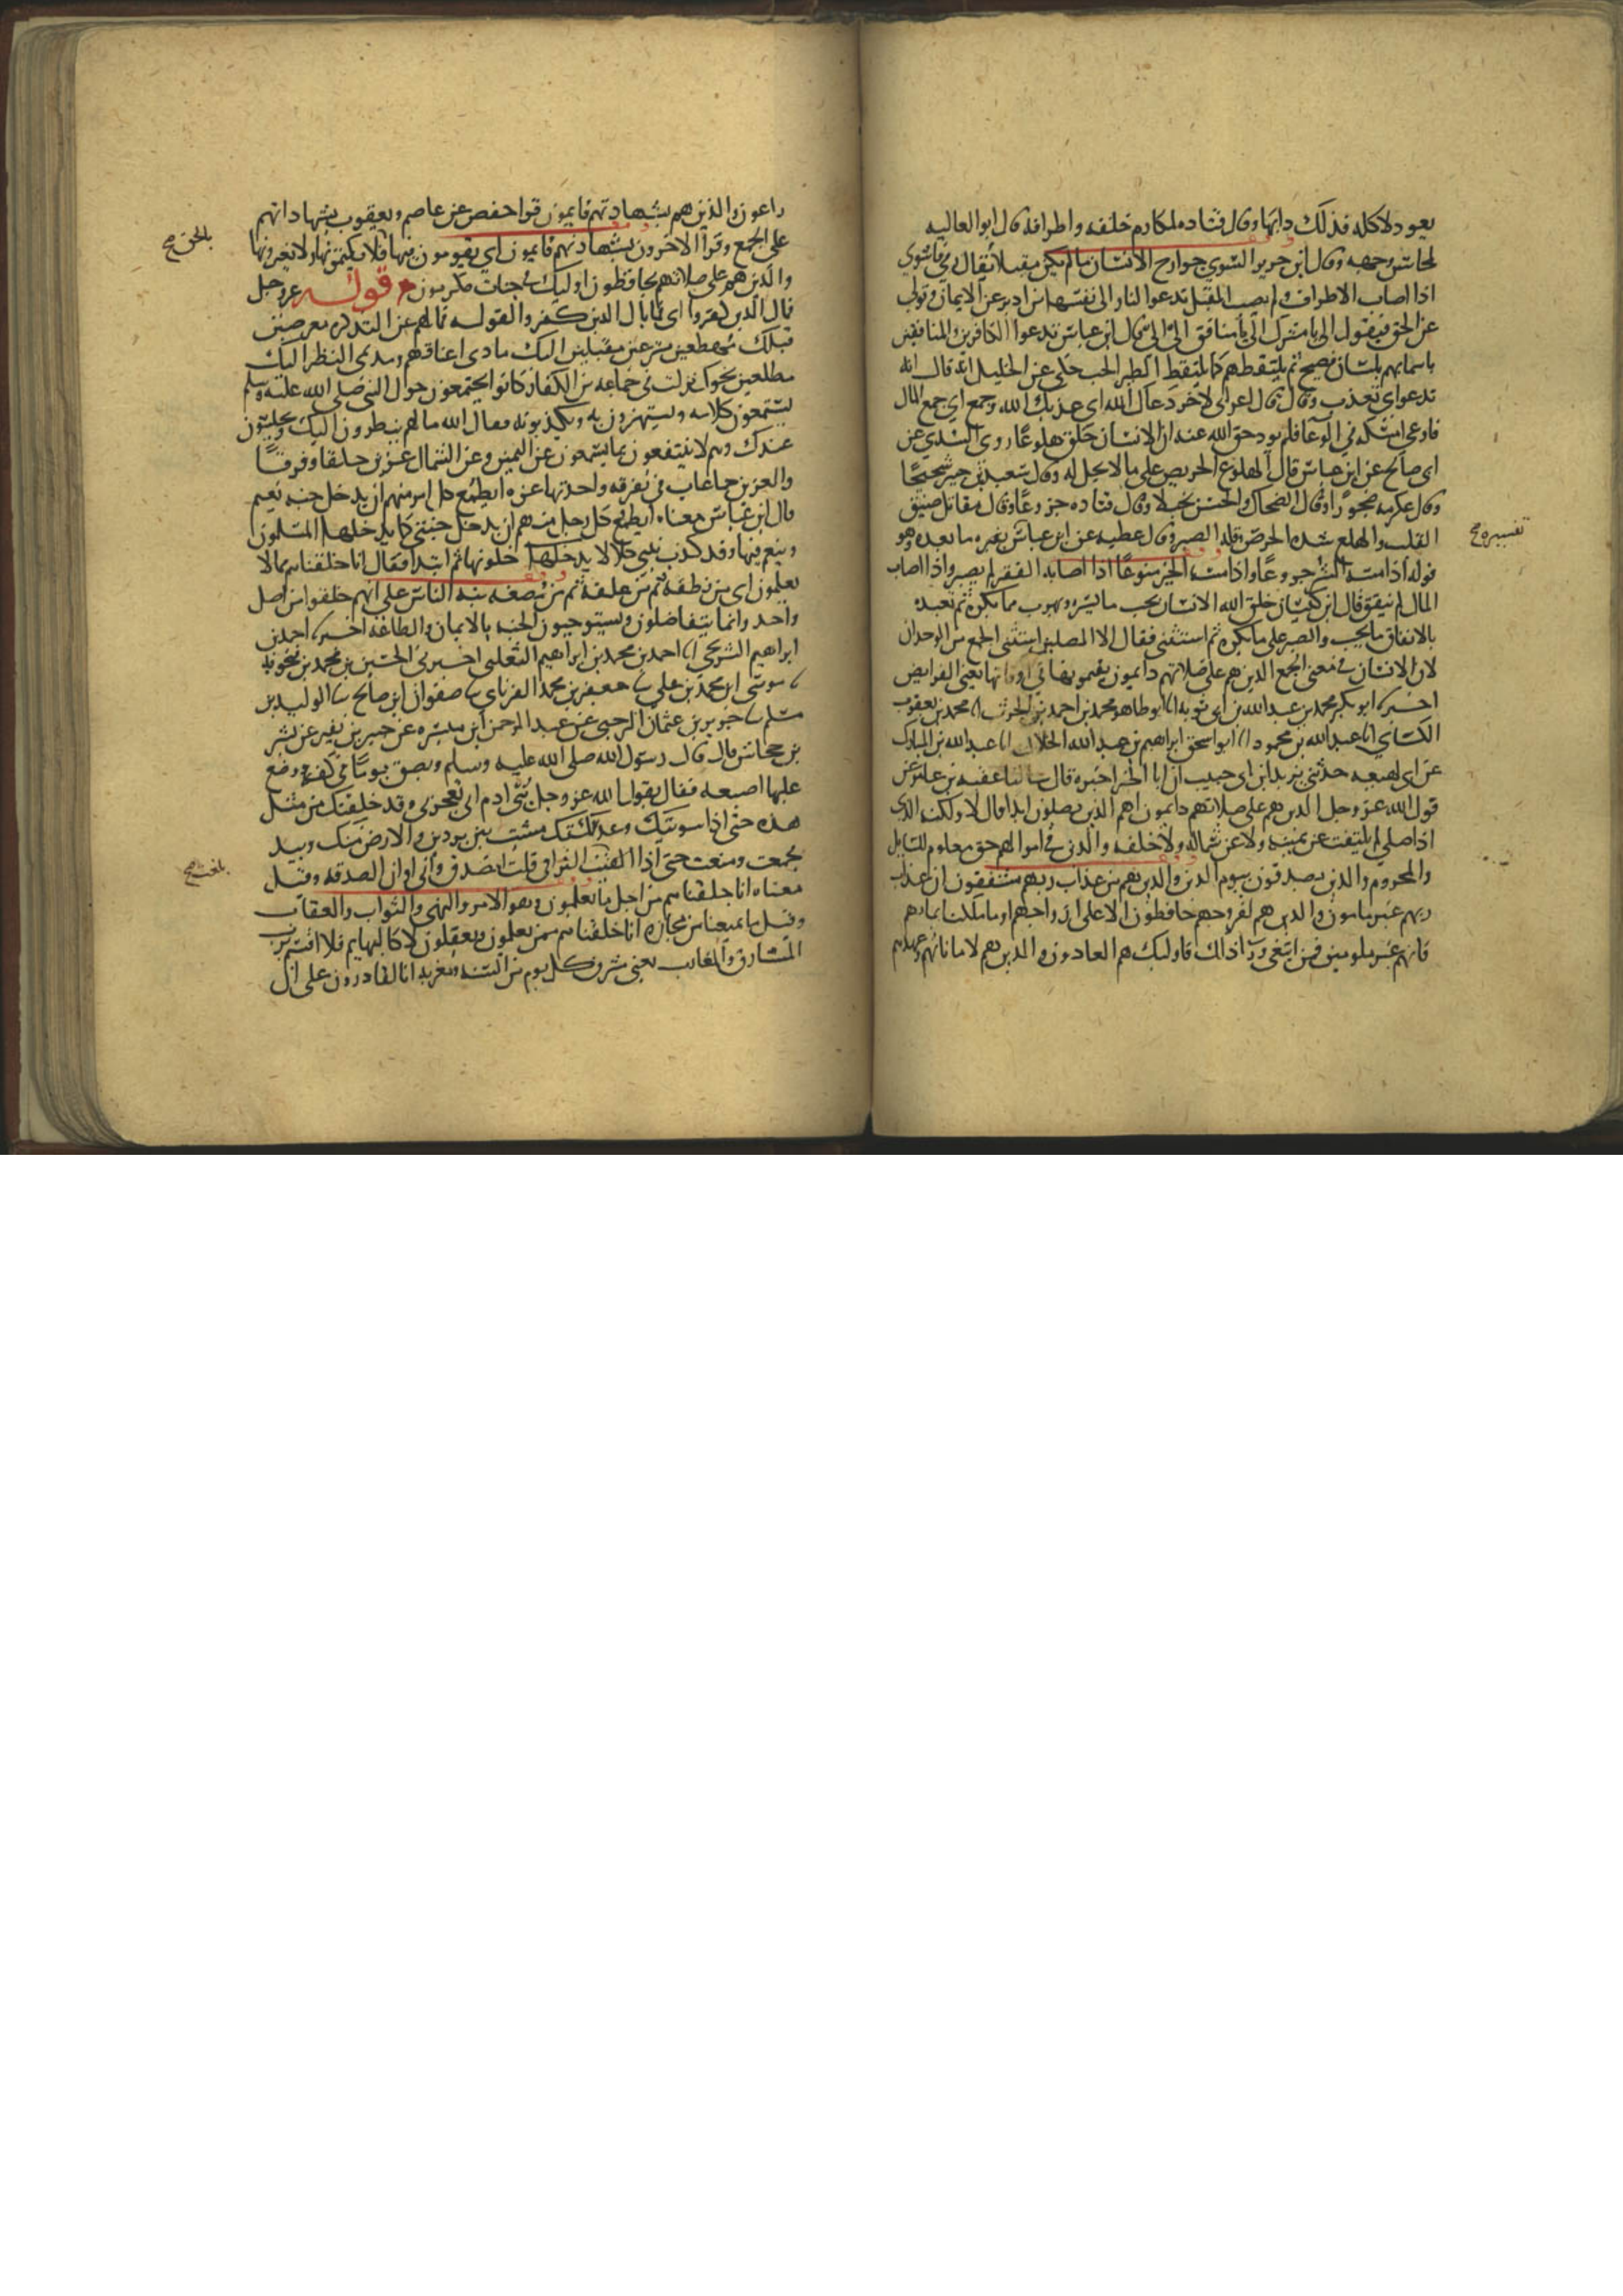 يعود لاكله فذلك دابها وقال قتاده لمكارم خلقه واطرافه قال ابو العاليه
لمحاسن وجهه وقال ابن جرير الشوي جوارح الانسان مالم يكن مقبلا يقال رمي فاشوي
اذا اصاب الاطراف ولم يصب المقبل تدعوا النار الى نفسها من ادبر عن الايمان وتولى
عن الحق فيقول الي يا مشرك الي يا منافق الي الي قال ابن عباس تدعوا الكافرين والمنافقين
باسمايهم بلسان فصيح ثم يلتقطهم كما يلتقط الطير الحب حكي عن الخليل انه قال انه
تدعوا اي تعذب وقال قال اعرابي لاخر دعاك الله اي عذبك الله وجمع اي جمع المال
فاوعى امسكه في الوعا فلم يود حق الله عنه ان الانسان خلق هلوعا روى السدي عن
ابي صالح عن ابن عباس قال الهلوع الحريص على ما لا يحل له وقال سعيد بن جبير شحيحا
وقال عكرمه ضجورا وقال الضحاك والحسن بخيلا وقال قتاده جزوعا وقال مقاتل ضيق
القلب والهلع شده الحرص وقله الصبر وقال عطيه عن ابن عباس تفسيره ما بعده وهو
قوله اذا مسه الشر جزوعا واذا مسه الخير منوعا اذا اصابه الفقر لم يصبر واذا اصاب
المال لم ينفق قال ابن كيسان خلق الله الانسان يحب ما يسره ويهرب مما يكره ثم تعبده
بالانفاق ما يحب والصبر على ما يكره ثم استثنى فقال الا المصلين استثنى الجمع من الوحدان
لان الانسان في معنى الجمع الذين هم على صلاتهم دايمون يقيمونها في اوقاتها يعني الفرايض
اخبرنا ابو بكر محمد بن عبد الله بن ابي توبه انا ابو طاهر محمد بن احمد بن الحرث انا محمد بن يعقوب
الكسائي انا عبد الله بن محمود انا ابو اسحق ابراهيم بن عبد الله الخلال انا عبد الله بن المبارك
عن ابن لهيعه حدثني يزيد ابن ابي حبيب ان ابا الخير اخبره قال سالنا عقبه بن عامر عن
قول الله عز وجل الذين هم على صلاتهم دايمون اهم الذين يصلون ابدا قال لا ولكنه الذي
اذا صلى لم يلتفت عن يمينه ولا عن شماله ولا خلفه والذين في اموالهم حق معلوم للسايل
والمحروم والذين يصدقون بيوم الدين والذين هم من عذاب ربهم مشفقون ان عذاب
ربهم غير مامون والذين هم لفروجهم حافظون الا على ازواجهم او ما ملكت ايمانهم
فانهم غير ملومين فمن ابتغى ورا ذلك فاوليك هم العادون والذين هم لاماناتهم وعهدهم
تفسيره صح
راعون والذين هم بشهادتهم قايمون قرا حفص عن عاصم ويعقوب بشهاداتهم
على الجمع وقرا الاخرون بشهادتهم قايمون اي يقومون فيها فلا يكتمونها ولا يغيرونها
والذين هم على صلاتهم يحافظون اوليك في جنات مكرمون قوله عز وجل
فمال الذين كفروا اي فما بال الذين كفروا لقوله فما لهم عن التذكره معرضين
قبلك مهطعين مسرعين مقبلين اليك مادي اعناقهم ومديمي النظر اليك
مطلعين نحوك نزلت في جماعه من الكفار كانوا يجتمعون حول النبي صلى الله عليه وسلم
يستمعون كلامه ويستهزون به ويكذبونه فقال الله ما لهم ينظرون اليك ويجلسون
عندك وهم لا ينتفعون بما يستمعون عن اليمين وعن الشمال عزين حلقا وفرقا
والعزين جماعات في تفرقه واحدتها عزه ايطمع كل امر منهم ان يدخل جنه نعيم
قال ابن عباس معناه ايطمع كل رجل منهم ان يدخل جنتي كما يدخلها المسلمون
ويتنعم فيها وقد كذب نبيي كلا لا يدخلها ثم ابتدا فقال انا خلقناهم مما لا
يعلمون اي من نطفه ثم من علقه ثم من مضغه نبه الناس على انهم خلقوا من اصل
واحد وانما يتفاضلون ويستوجبون الجنه بالايمان والطاعه اخبرنا احمد بن
ابراهيم الشريحي انا احمد بن محمد بن ابراهيم الثعلبي اخبرني الحسين بن محمد بن فنجويه
نا موسى ابن محمد بن علي نا جعفر بن محمد الفريابي نا صفوان ابن صالح نا الوليد بن
مسلم نا جرير بن عثمان الرحبي عن عبد الرحمن ابن ميسره عن جبير بن نفير عن بشر
بن جحاش قال قال رسول الله صلى الله عليه وسلم وبصق يوما في كفه ووضع
عليها اصبعه فقال يقول الله عز وجل بني ادم انى تعجزني وقد خلقتك من مثل
هذه حتى اذا سويتك وعدلتك مشيت بين بردين وللارض منك وييد
فجمعت ومنعت حتى اذا بلغت التراقي قلت اتصدق وانى اوان الصدقه وقيل
معناه انا خلقناهم من اجل ما يعلمون وهو الامر والنهي والثواب والعقاب
وقيل ما بمعنى من مجازه انا خلقناهم ممن يعلمون ويعقلون لا كالبهايم فلا اقسم برب
المشارق والمغارب يعني مشرق كل يوم من السنه ومغربه انا لقادرون على ان
بالحق صح